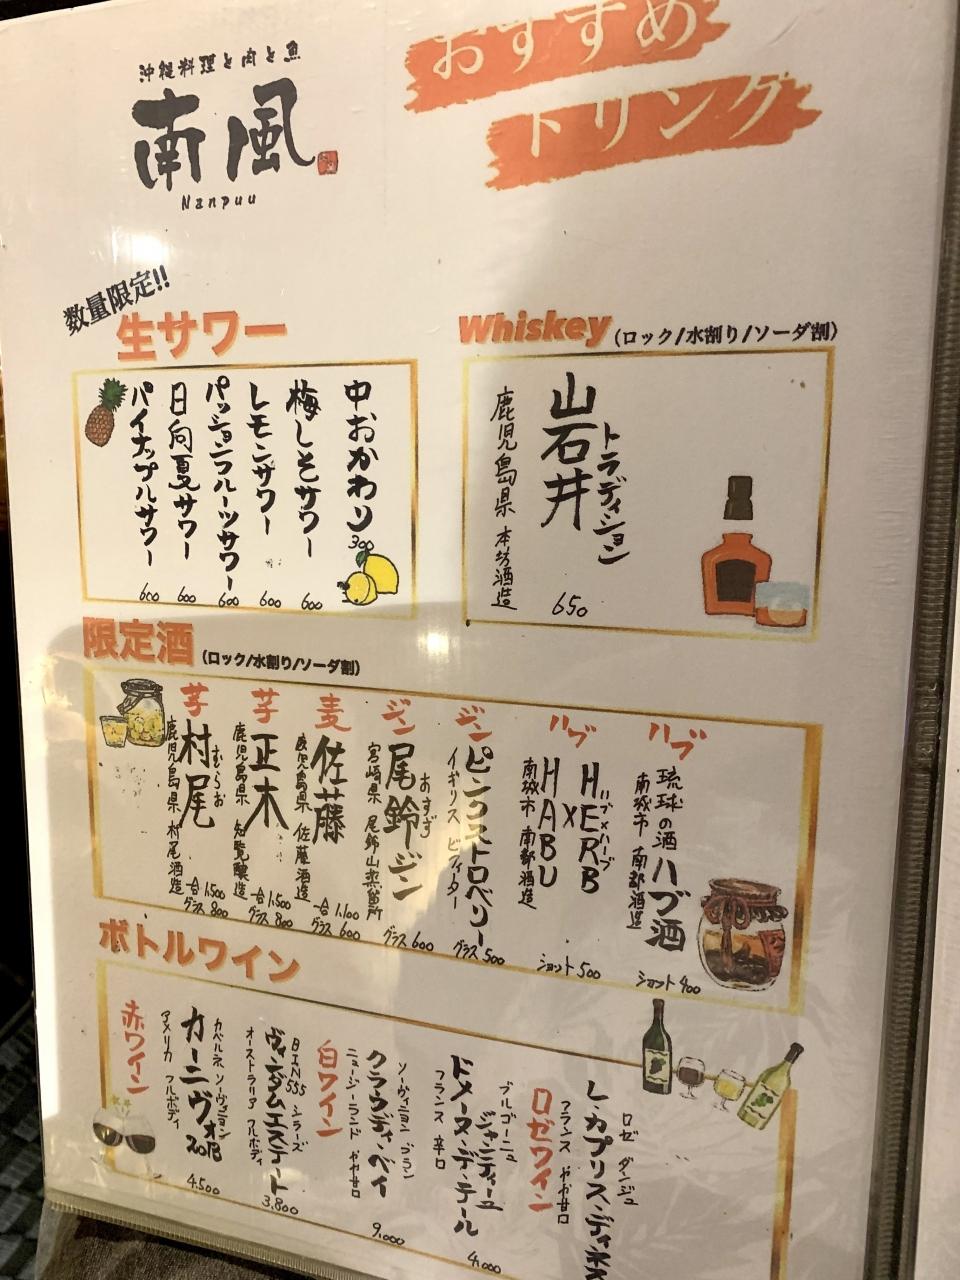 沖縄料理と肉と魚
南風
Nanpuu
おすすめ
ドリンク
数量限定!!
生サワー
中おかわり 300
梅しそサワー 600
レモンサワー 600
パッションフルーツサワー 600
日向夏サワー 600
パイナップルサワー 600
Whiskey (ロック/水割り/ソーダ割)
山石井 トラディション 650
鹿児島県 本坊酒造
限定酒 (ロック/水割り/ソーダ割)
ハブ
琉球の酒 ハブ酒 ショット 400
南城市 南都酒造
ハブ
ハブ×ハーブ
HERB
×
HABU ショット 500
南城市 南都酒造
ジン
ピンクストロベリー グラス 500
イギリス ビフィーター
ジン
おすず
尾鈴ジン グラス 600
宮崎県 尾鈴山蒸留所
麦
佐藤
一合 1,100
グラス 600
鹿児島県 佐藤酒造
芋
正木
一合 1,500
グラス 800
鹿児島県 知覧醸造
芋
むらお
村尾
一合 1,500
グラス 800
鹿児島県 村尾酒造
ボトルワイン
赤ワイン
カベルネ ソーヴィニヨン
カーニヴォ
アメリカ フルボディ
4,500
BIN555 シラーズ
ヴィンダムエステート
オーストラリア フルボディ
3,800
白ワイン
ソーヴィニヨン ブラン
クラウディ・ベイ
ニュージーランド やや辛口
9,000
ブルゴーニュ
ジャンティーユ
ドメーヌ・デ・テール
フランス 辛口
4,000
ロゼワイン
ロゼ ダンジュ
レ・カプリス・ディネ
フランス やや甘口